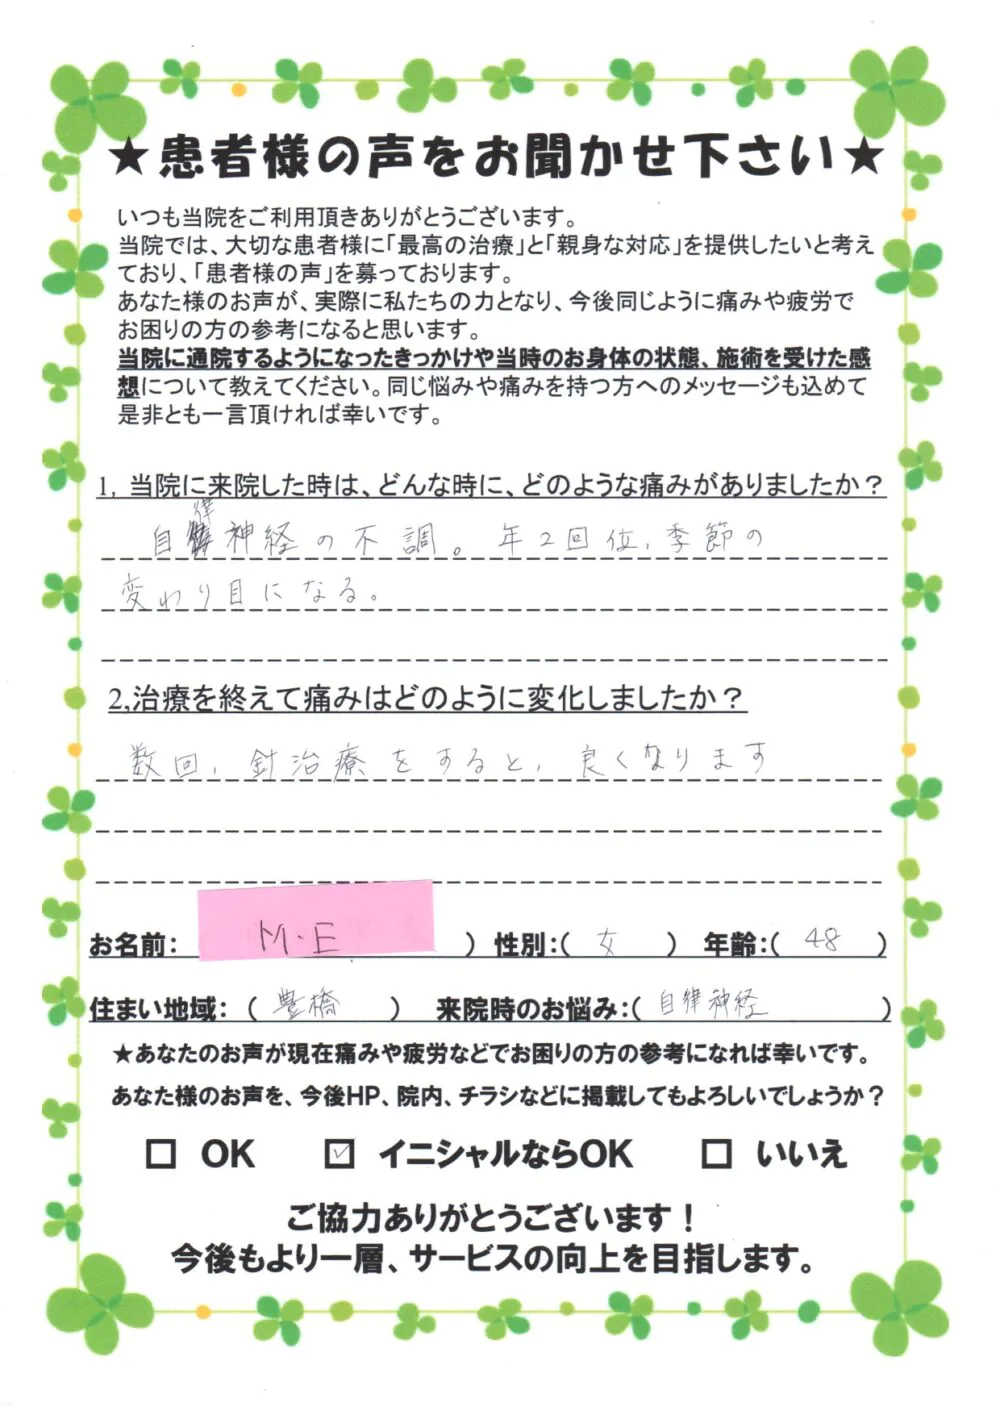 ★患者様の声をお聞かせ下さい★
いつも当院をご利用頂きありがとうございます。
当院では、大切な患者様に「最高の治療」と「親身な対応」を提供したいと考え
ており、「患者様の声」を募っております。
あなた様のお声が、実際に私たちの力となり、今後同じように痛みや疲労で
お困りの方の参考になると思います。
当院に通院するようになったきっかけや当時のお身体の状態、施術を受けた感
想について教えてください。同じ悩みや痛みを持つ方へのメッセージも込めて
是非とも一言頂ければ幸いです。
1, 当院に来院した時は、どんな時に、どのような痛みがありましたか？
自律神経の不調。年2回位、季節の
変わり目になる。
2,治療を終えて痛みはどのように変化しましたか？
数回、針治療をすると、良くなります
お名前： M・E ） 性別：（ 女 ） 年齢：（ 48 ）
住まい地域： （ 豊橋 ） 来院時のお悩み：（ 自律神経 ）
★あなたのお声が現在痛みや疲労などでお困りの方の参考になれば幸いです。
あなた様のお声を、今後HP、院内、チラシなどに掲載してもよろしいでしょうか？
□ OK ☑ イニシャルならOK □ いいえ
ご協力ありがとうございます！
今後もより一層、サービスの向上を目指します。